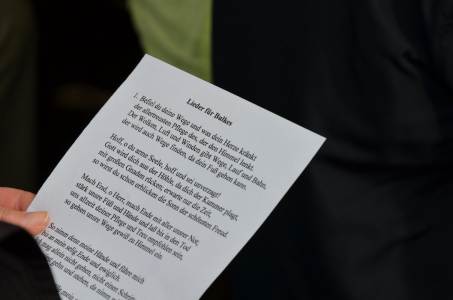 Lieder für Bulkes
1. Befiel du deine Wege und was dein Herze kränkt
der allertreusten Pflege des, der den Himmel lenkt.
Der Wolken, Luft und Winden gibt Wege, Lauf und Bahn,
der wird auch Wege finden, da dein Fuß gehen kann.
Hoff, o du arme Seele, hoff und sei unverzagt!
Gott wird dich aus der Höhle, da dich der Kummer plagt,
mit großen Gnaden rücken; erwarte nur die Zeit,
so wirst du schon erblicken die Sonn der schönsten Freud.
Mach End, o Herr, mach Ende mit aller unsrer Not;
stärk unsre Füß und Hände und laß bis in den Tod
uns allzeit deiner Pflege und Treu empfohlen sein,
so gehen unsre Wege gewiß zu Himmel ein.
So nimm denn meine Hände und führe mich
bis an mein selig Ende und ewiglich.
mag allein nicht gehen, nicht einen Schritt
gehn und stehen, da nimm